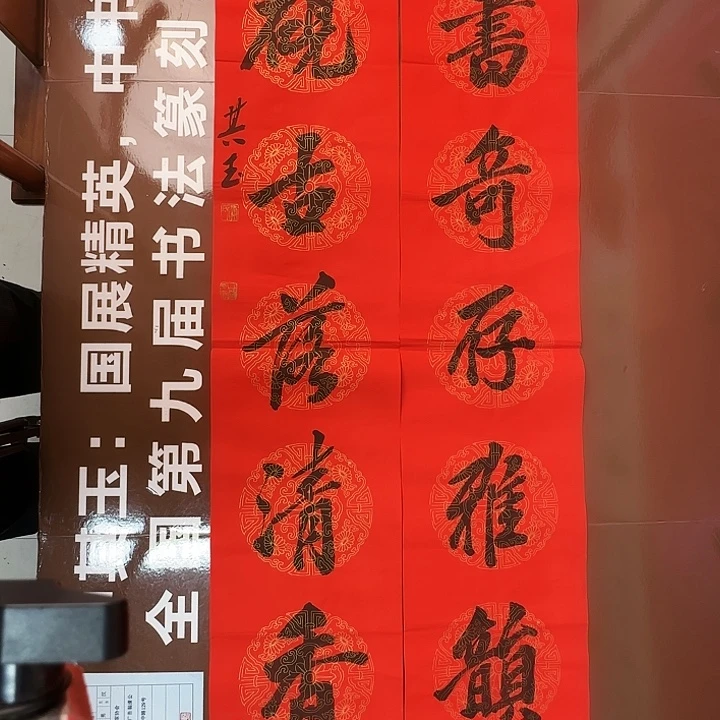 書奇存雅韻
硯古落清香
其玉
其玉：国展精英，中
全国第九届书法篆刻